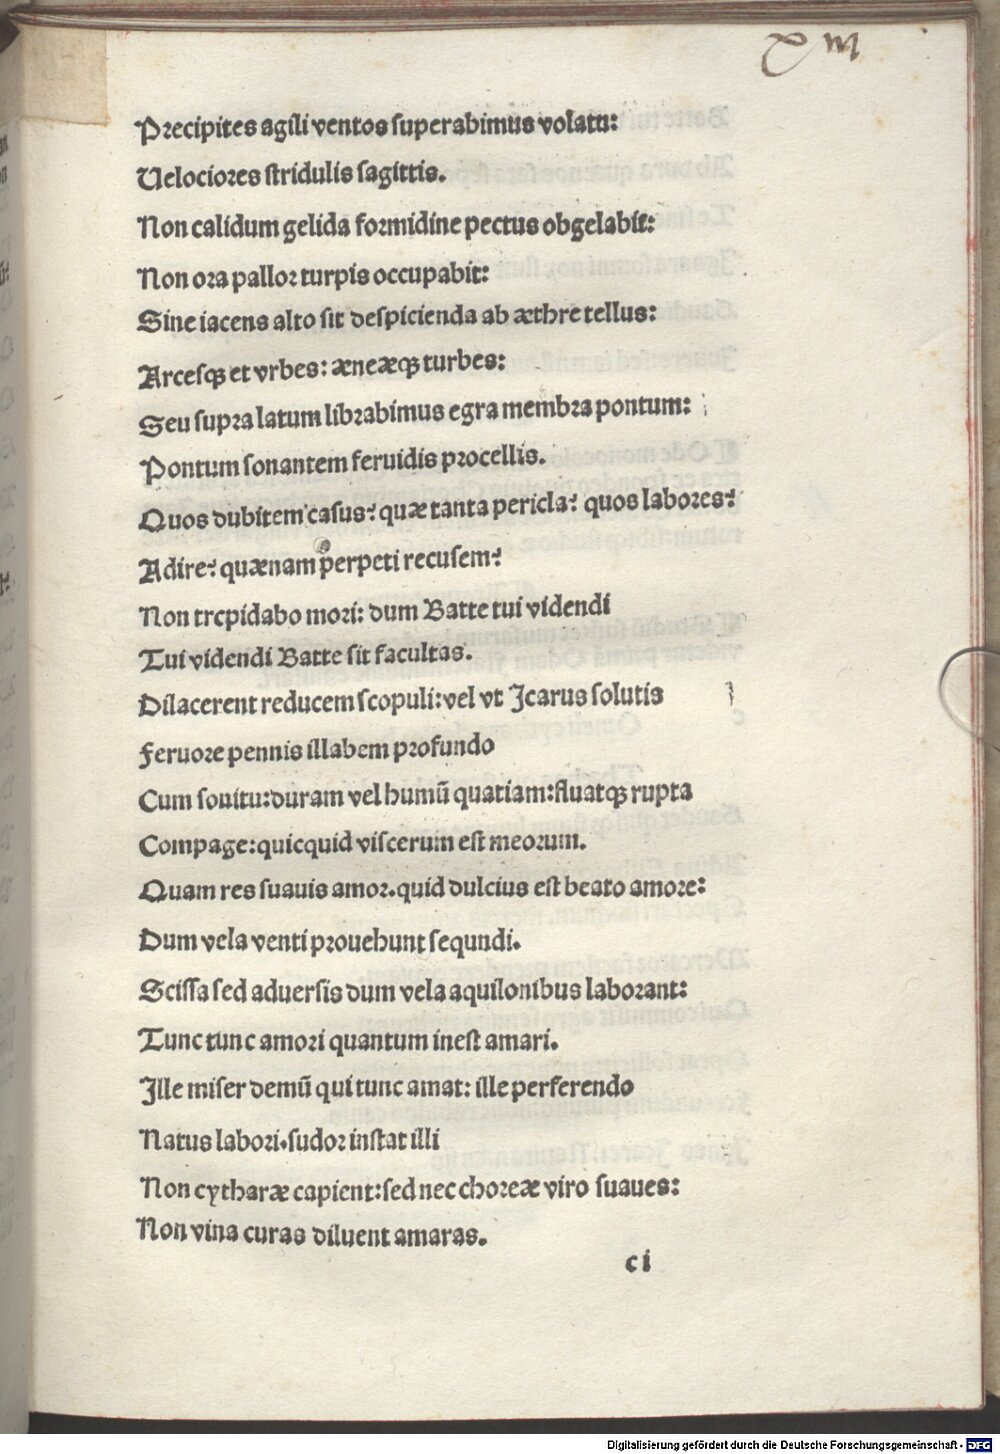 XIII
Precipites agili ventos superabimus volatu:
Velociores stridulis sagittis.
Non calidum gelida formidine pectus obgelabit:
Non ora pallor turpis occupabit:
Sine iacens alto sit despicienda ab æthre tellus:
Arcesqꝫ et vrbes: æneæqꝫ turbes:
Seu supra latum librabimus egra membra pontum:
Pontum sonantem feruidis procellis.
Quos dubitem casus? quæ tanta pericla? quos labores?
Adire? quænam perpeti recusem?
Non trepidabo mori: dum Batte tui videndi
Tui videndi Batte sit facultas.
Dilacerent reducem scopuli: vel vt Icarus solutis
Feruore pennis illabem profundo
Cum sonitu: duram vel humū quatiam: fluatqꝫ rupta
Compage: quicquid viscerum est meorum.
Quam res suauis amor. quid dulcius est beato amore:
Dum vela venti prouehunt sequndi.
Scissa sed aduersis dum vela aquilonibus laborant:
Tunc tunc amori quantum inest amari.
Ille miser demū qui tunc amat: ille perferendo
Natus labori. sudor instat illi
Non cytharæ capient: sed nec choreæ viro suaues:
Non vina curas diluent amaras.
c i
Digitalisierung gefördert durch die Deutsche Forschungsgemeinschaft - DFG